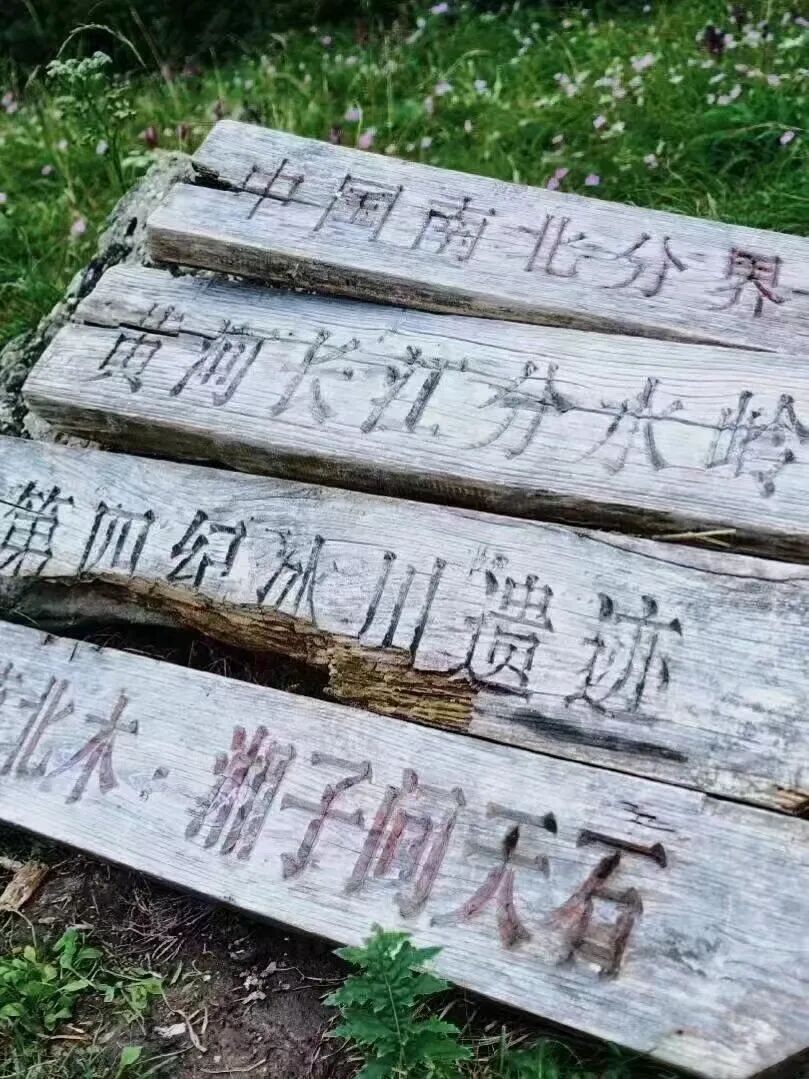 中国南北分界
黄河长江分水岭
第四纪冰川遗迹
北木·子问天石